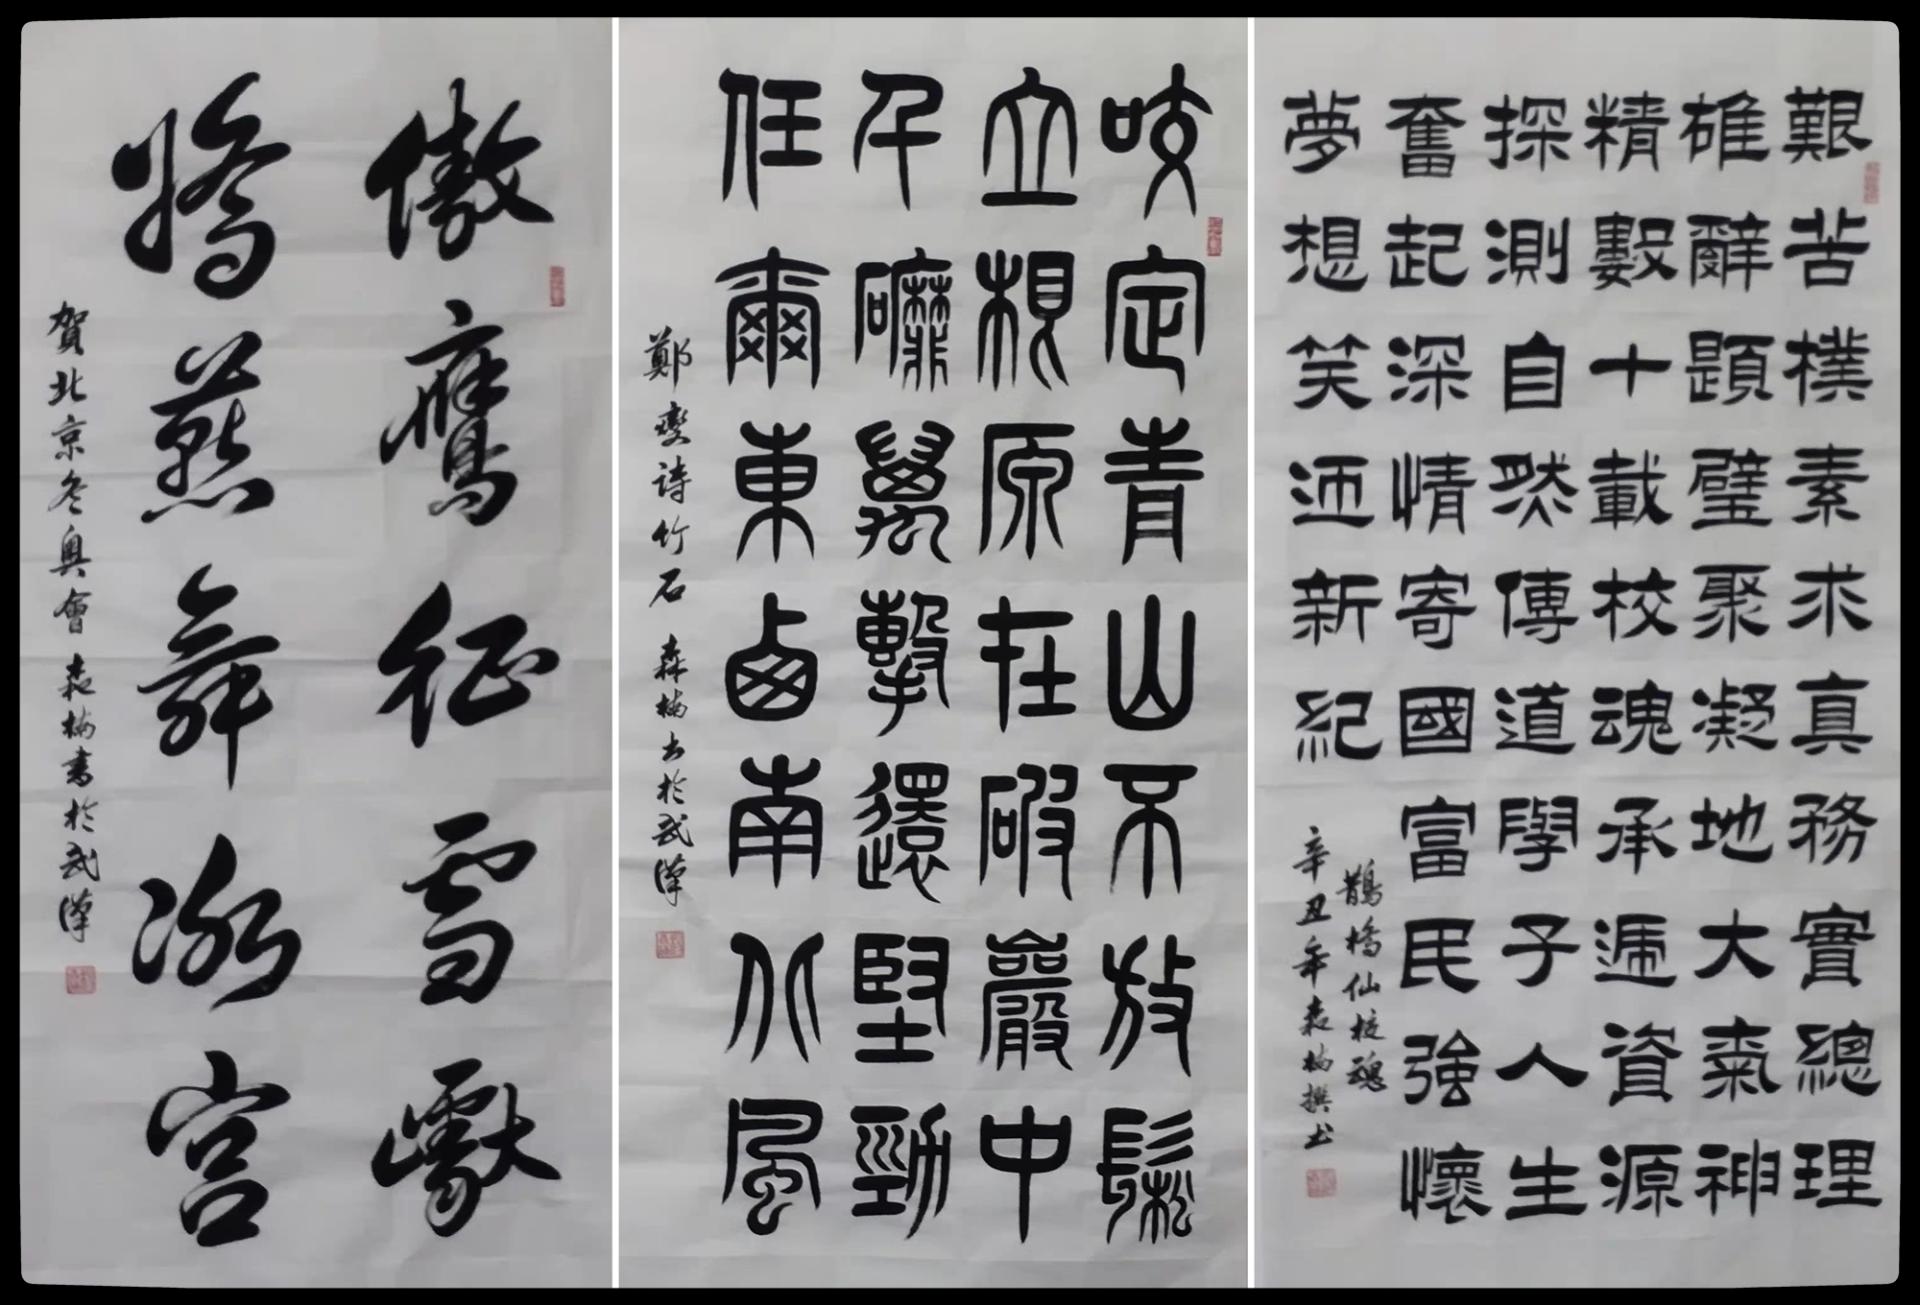 傲鷹征雪巘
嬌燕舞冰宮
賀北京冬奥會 森楠書於武漢
咬定青山不放鬆
立根原在破巖中
千磨萬擊還堅勁
任爾東西南北風
鄭燮詩竹石 森楠书於武漢
艱苦樸素求真務實總理
雄辭題壁聚凝地大氣神
精數十載校魂承遞資源
探測自然傳道學子人生
奮起深情寄國富民強懷
夢想笑迎新紀
鵲橋仙校魂
辛丑年森楠撰书